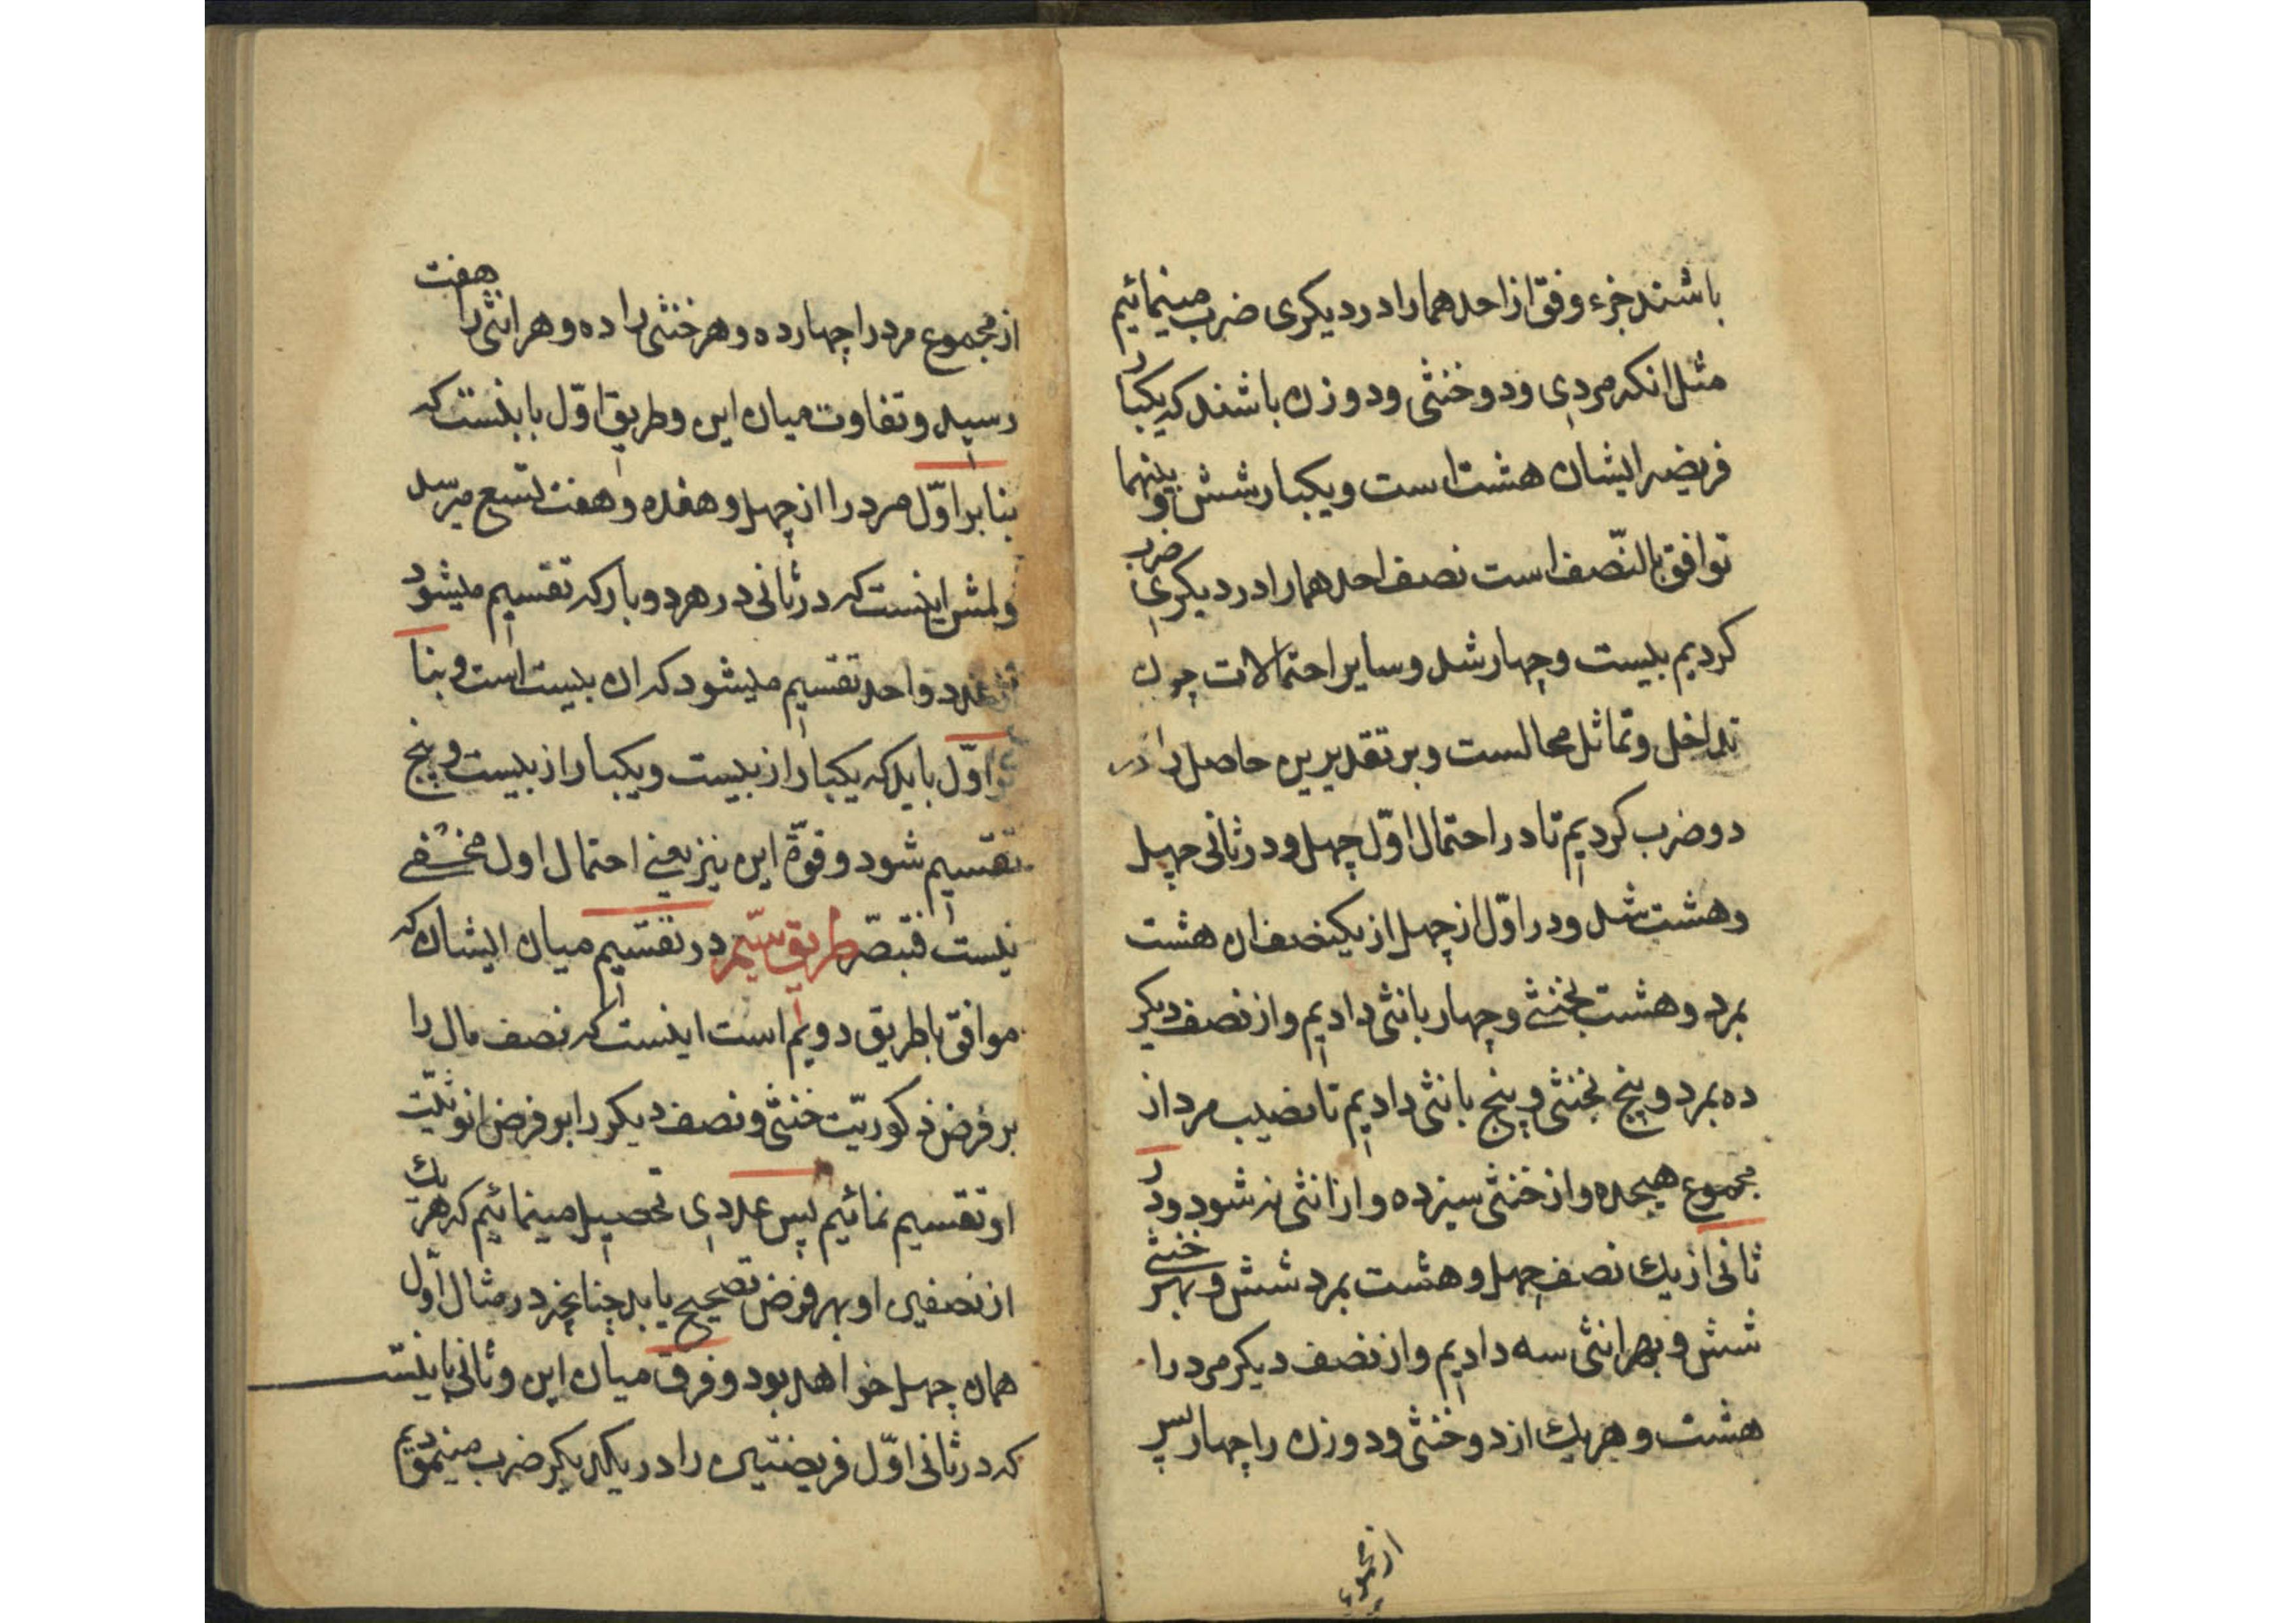 باشند جزء وفق از احدهما را در دیکری ضرب مینمائیم
مثل انکه مردی و دو خنثی و دو زن باشند که یکبار
فریضه ایشان هشت است و یکبار شش و بینهما
توافق بالنّصف است نصف احدهما را در دیکری ضرب
کردیم بیست و چهار شد و سایر احتمالات چون
تداخل و تماثل محالست و بر تقدیرین حاصل را در
دو ضرب کردیم تا در احتمال اوّل چهل و در ثانی چهل
و هشت شد و در اوّل از چهل از یکنصف ان هشت
بمرد و هشت بخنثی و چهار بانثی دادیم و از نصف دیکر
ده بمرد و پنج بخنثی و پنج بانثی دادیم تا نصیب مرد از
مجموع هیجده و از خنثی سیزده و از انثی نه شود و در
ثانی از یك نصف چهل و هشت بمرد شش و بهر خنثی
شش و بهر انثی سه دادیم و از نصف دیکر مرد را
هشت و هر یك از دو خنثی و دو زن را چهار پس
از مجموع
از مجموع مرد را چهارده و هر خنثی را ده و هر انثی را هفت
رسید و تفاوت میان این و طریق اوّل باینست که
بنا بر اوّل مرد را از چهل و هفده و هفت تسع میرسد
ولمش اینست که در ثانی در هر دو بار که تقسیم میشود
عدد واحد تقسیم میشود که ان بیست است و بنا
بر اوّل باید که یکبار از بیست و یکبار از بیست و پنج
تقسیم شود و قوّة این نیز یعنی احتمال اول مخفی
نیست فتبصّر طریق سیّم در تقسیم میان ایشان که
موافق با طریق دویم است اینست که نصف مال را
بر فرض ذکوریّت خنثی و نصف دیکر را بر فرض انوثیّت
او تقسیم نمائیم پس عددی تحصیل مینمائیم که هر یك
از نصفین او بهر فرض تصحیح یابد چنانچه در مثال اوّل
همان چهل خواهد بود و فرق میان این و ثانی باینست
که در ثانی اوّل فریضتین را در یکدیکر ضرب مینمودیم